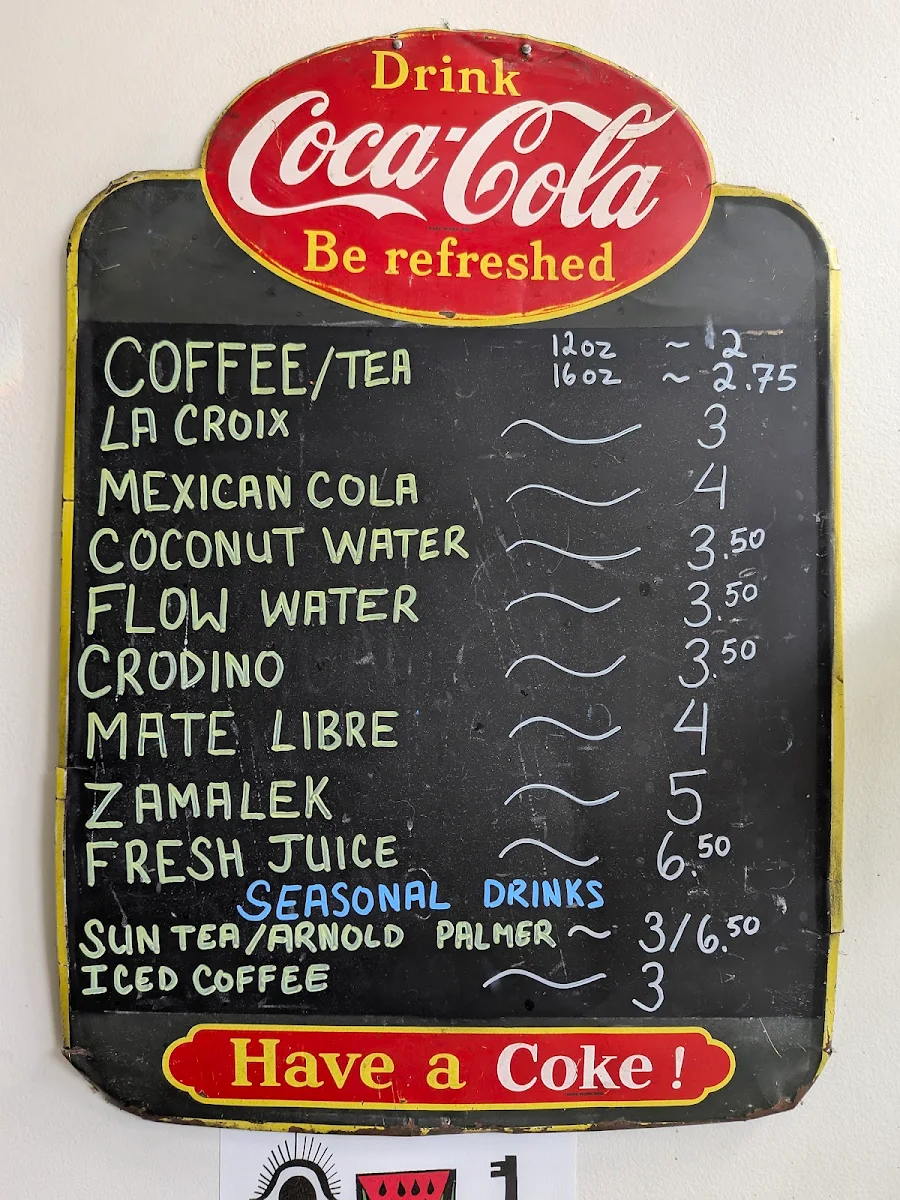 Drink
Coca-Cola
Be refreshed
COFFEE/TEA 12oz ~ 2
16oz ~ 2.75
LA CROIX ~ 3
MEXICAN COLA ~ 4
COCONUT WATER ~ 3.50
FLOW WATER ~ 3.50
CRODINO ~ 3.50
MATE LIBRE ~ 4
ZAMALEK ~ 5
FRESH JUICE ~ 6.50
SEASONAL DRINKS
SUN TEA/ARNOLD PALMER ~ 3/6.50
ICED COFFEE ~ 3
Have a Coke!